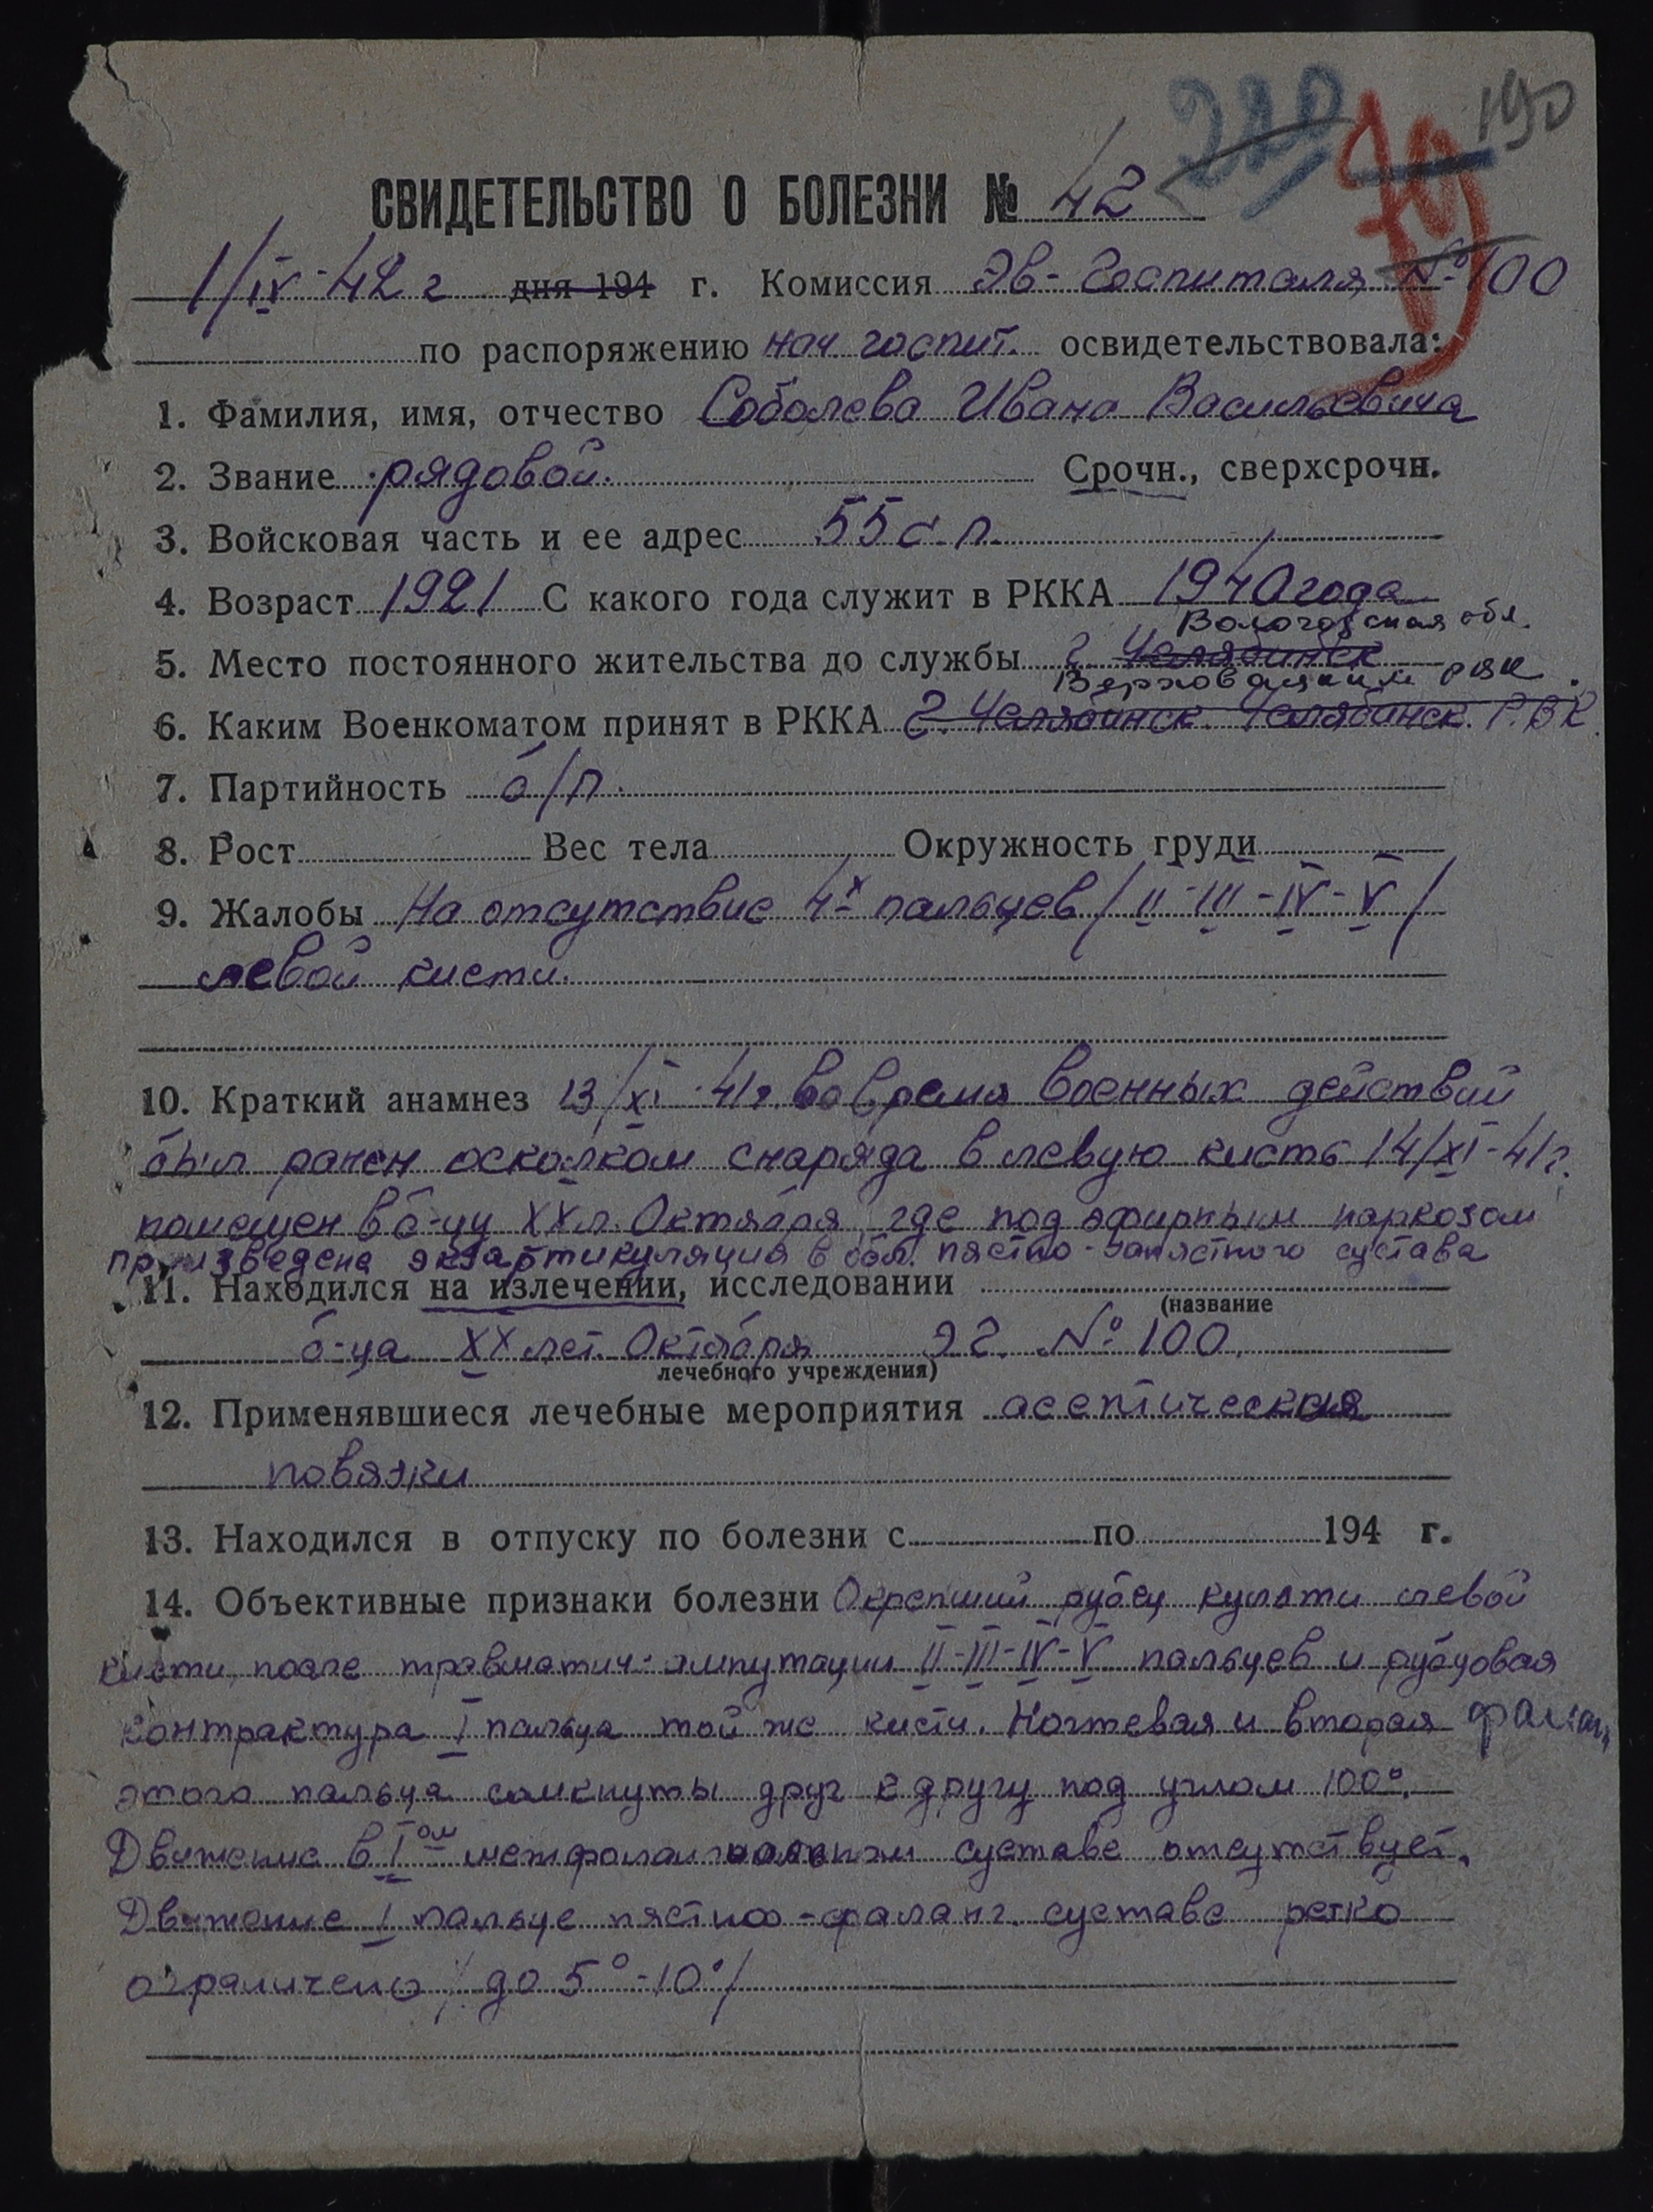 220 70 190
СВИДЕТЕЛЬСТВО О БОЛЕЗНИ № 42
1/IV-42 г дня 194 г. Комиссия Эв-Госпиталя №100
по распоряжению нач госпит. освидетельствовала:
1. Фамилия, имя, отчество Соболева Ивана Васильевича
2. Звание рядовой. Срочн., сверхсрочн.
3. Войсковая часть и ее адрес 55 с.п.
4. Возраст 1921 С какого года служит в РККА 1940 года
Вологодская обл.
5. Место постоянного жительства до службы г. Челябинск
Верховажским РВК.
6. Каким Военкоматом принят в РККА г. Челябинск Челябинск. Р.В.К.
7. Партийность б/п.
8. Рост Вес тела Окружность груди
9. Жалобы На отсутствие 4х пальцев /II-III-IV-V/
левой кисти.
10. Краткий анамнез 13/XI-41г. во время военных действий
был ранен осколком снаряда в левую кисть 14/XI-41г.
помещен в б-цу XXл. Октября, где под эфирным наркозом
произведена экзартикуляция в обл. пястно-запястного сустава
11. Находился на излечении, исследовании
(название
б-ца XX лет. Октября ЭГ. №100.
лечебного учреждения)
12. Применявшиеся лечебные мероприятия асептическая
повязки
13. Находился в отпуску по болезни с по 194 г.
14. Объективные признаки болезни Окрепший рубец культи левой
кисти, после травматич. ампутации II-III-IV-V пальцев и рубцовая
контрактура I пальца той же кисти. Ногтевая и вторая фаланг
этого пальца сомкнуты друг к другу под углом 100°.
Движение в I ом межфаланговом суставе отсутствует.
Движение I пальце пястно-фаланг. суставе резко
ограничено /до 5°-10°/